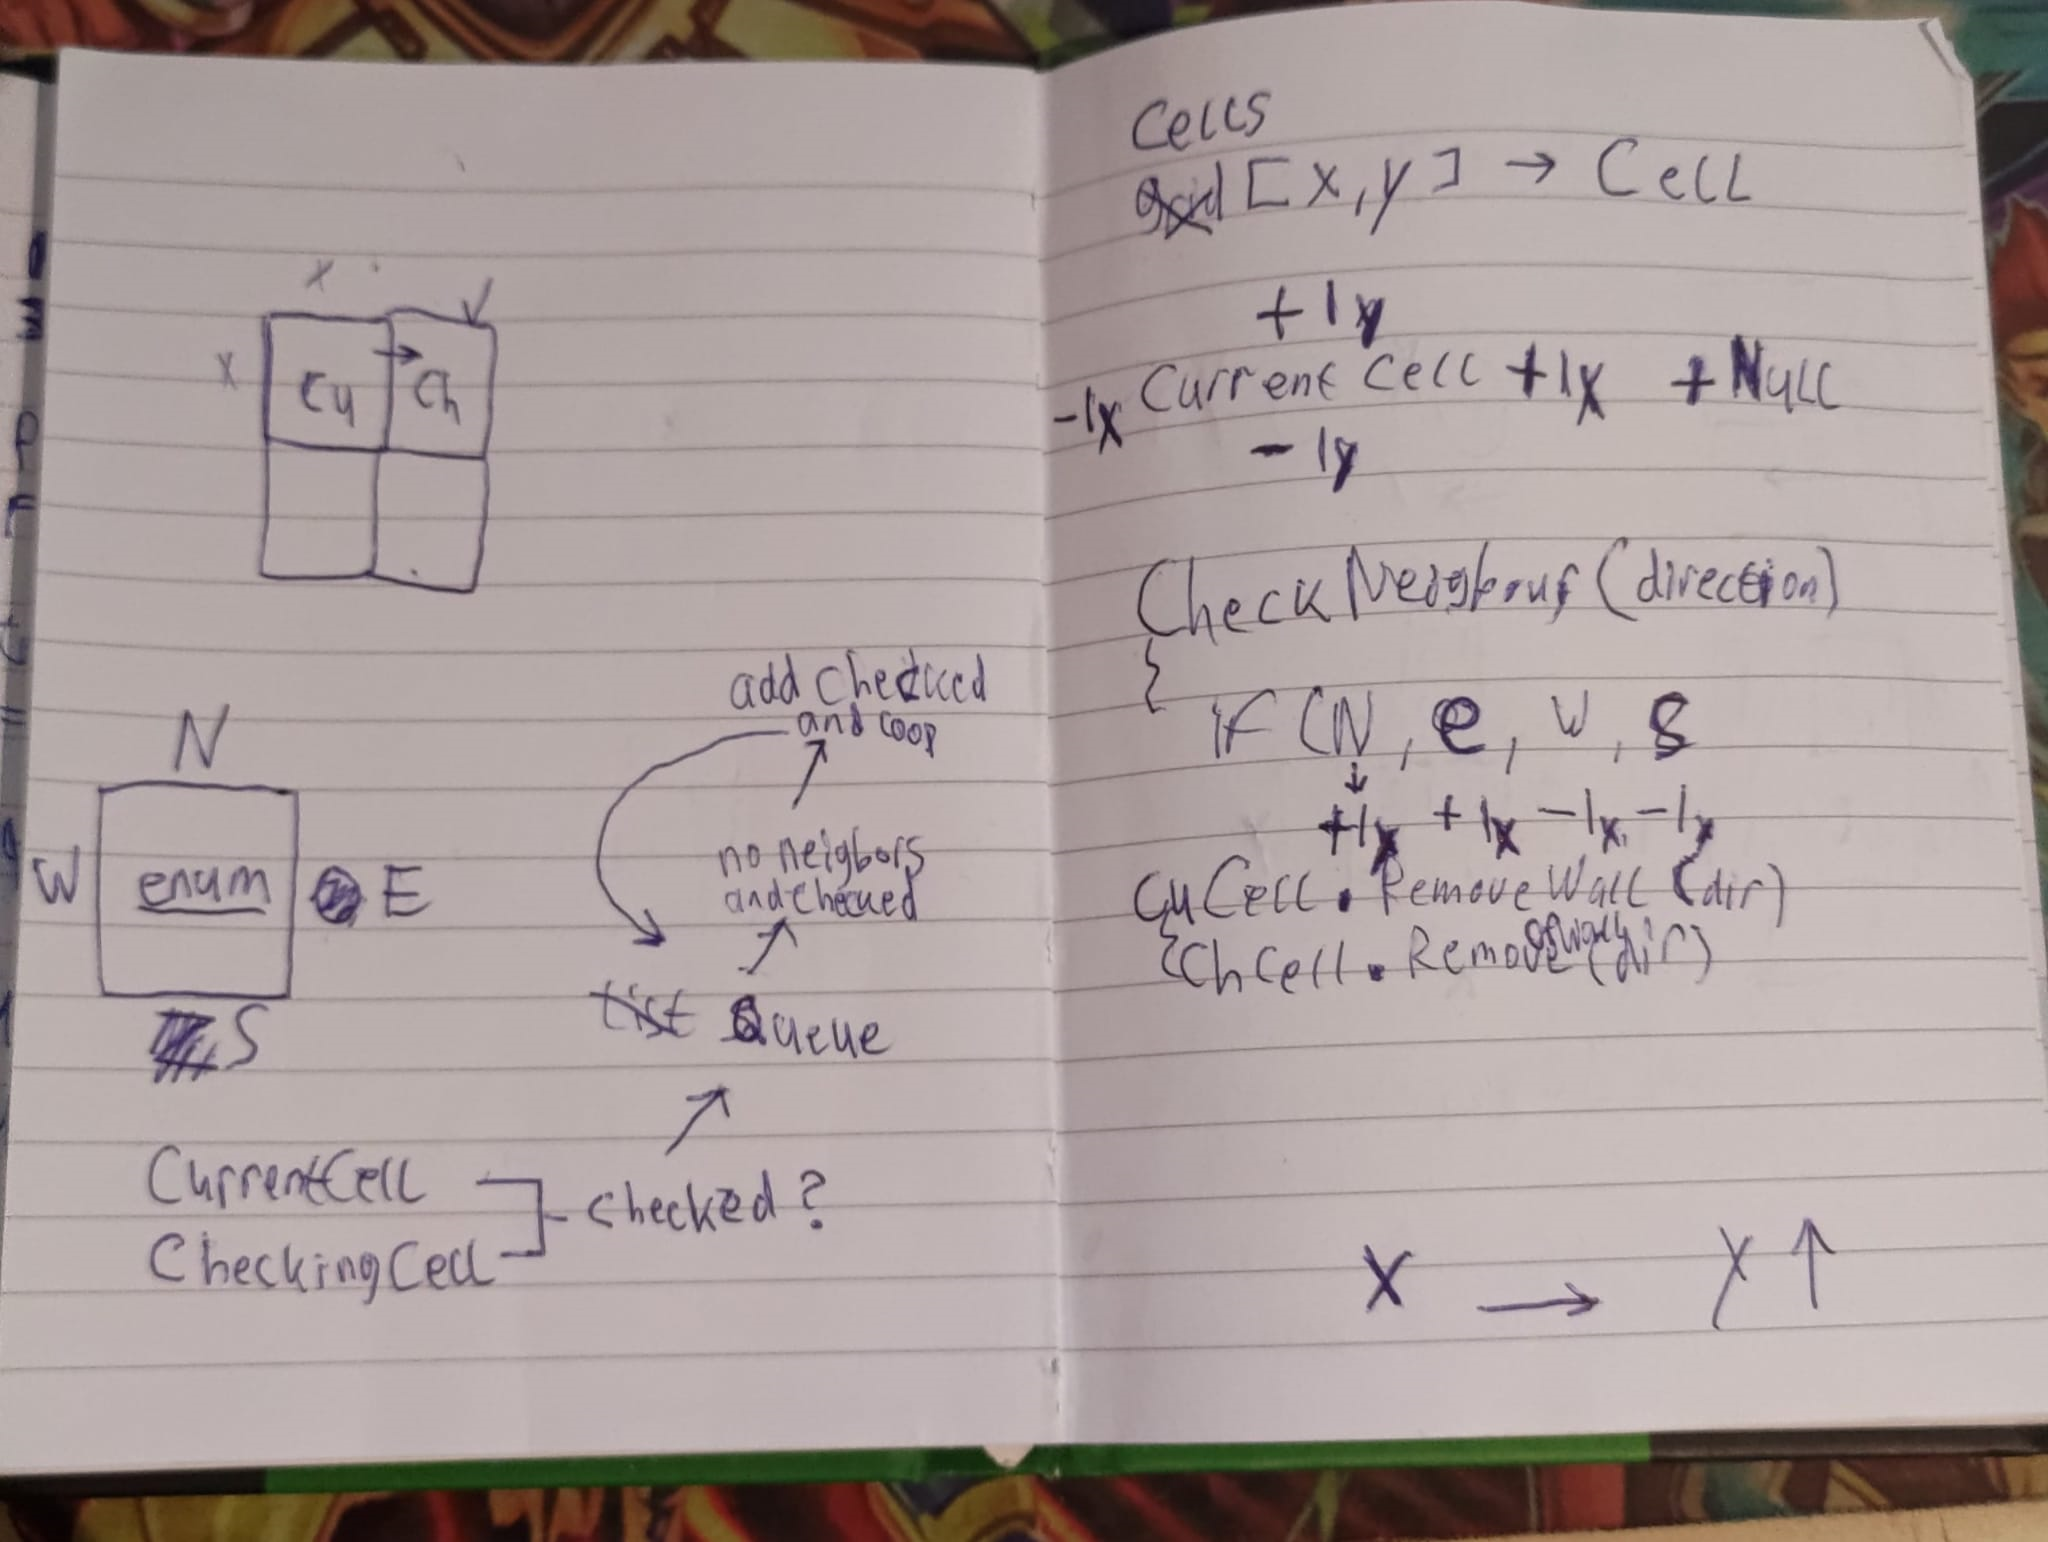 x
x
Cu → Ch
N
W enum E
S
add checked
and loop
no neigbors
and checked
List Queue
CurrentCell
CheckingCell
checked?
Cells
grid [x,y] → Cell
+1y
-1x Current Cell +1x + Null
-1y
Check Neigbour (direction)
{
if (N, e, W, S
↓
+1y +1x -1x -1y
CuCell. Remove Wall (dir)
{ChCell. Remove (dir)
X → Y ↑